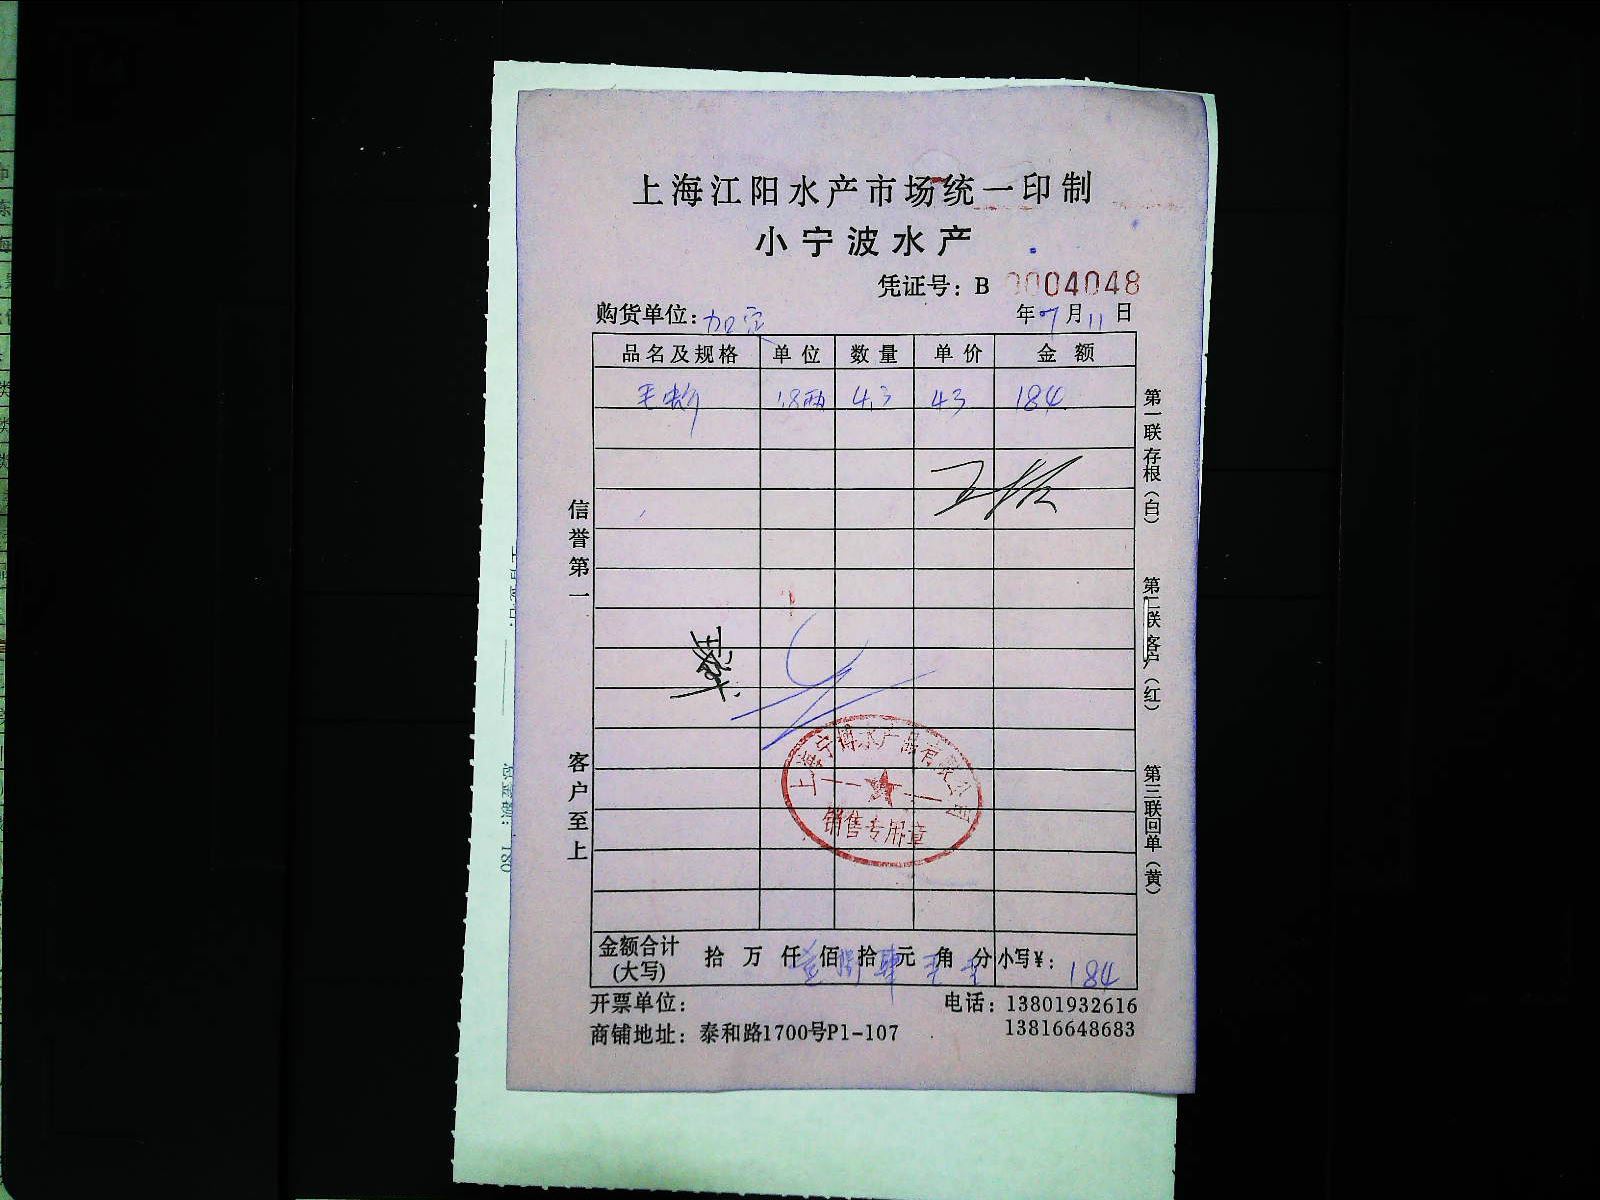 上海江阳水产市场统一印制
小宁波水产
凭证号：B 0004048
购货单位：加定 年 7 月 11 日
品名及规格 单位 数量 单价 金额
毛蚶 1.8两 4.3 43 184
信誉第一
客户至上
第一联存根（白）
第二联客户（红）
第三联回单（黄）
上海宁博水产品有限公司
销售专用章
金额合计(大写) 拾 万 仟 壹 佰 捌 拾 肆 元 角 分 小写¥： 184
开票单位：
电话：13801932616
13816648683
商铺地址：泰和路1700号P1-107